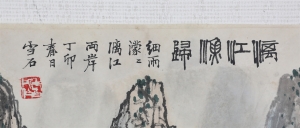 漓江渔歸
細雨
濛〻
漓江
両岸
丁卯
春日
雪石